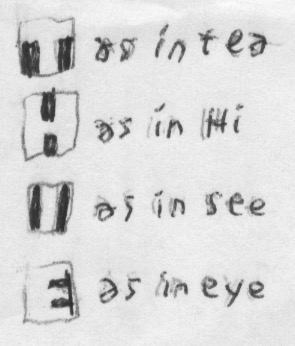 as in tea
as in Hi
as in see
as in eye